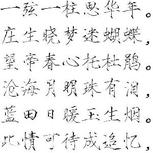 一弦一柱思华年。
庄生晓梦迷蝴蝶，
望帝春心托杜鹃。
沧海月明珠有泪，
蓝田日暖玉生烟。
此情可待成追忆，